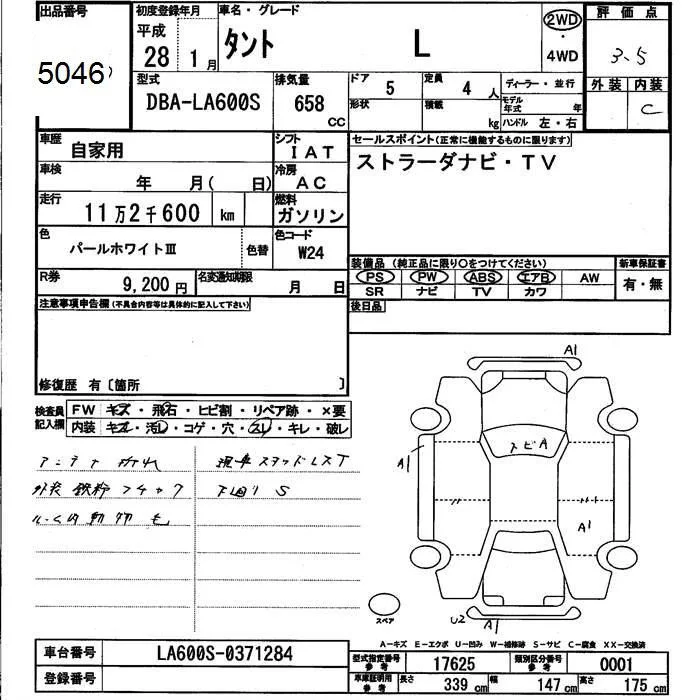 出品番号
5046
初度登録年月
平成
28 1月
車名・グレード
タント L
2WD
・
4WD
評価点
3.5
外装 内装
C
型式
DBA-LA600S
排気量
658
CC
ドア
5
定員
4人
形状
積載
kg
ディーラー・並行
モデル年式 年
ハンドル 左・右
車歴
自家用
シフト
IAT
セールスポイント(正常に機能するものに限ります)
ストラーダナビ・TV
車検
年 月( 日)
冷房
AC
走行
11万2千600 km
燃料
ガソリン
色
パールホワイトⅢ
色替
色コード
W24
装備品 (純正品に限り○をつけてください)
PS PW ABS エアB AW
SR ナビ TV カワ
新車保証書
有・無
R券
9,200円
名変通知期限
月 日
後日品
注意事項申告欄(不具合内容等は具体的に記入して下さい)
修復歴 有〔箇所 〕
検査員記入欄
FW キズ・飛石・ヒビ割・リペア跡・×要
内装 キズ・汚レ・コゲ・穴・スレ・キレ・破レ
アンテナ 折れ
現車スタッドレスT
外装 鉄粉
下回り S
動物毛
A1
トビA
A1
A1
U2 A1
スペア
A-キズ E-エクボ U-凹み W-補修跡 S-サビ C-腐食 XX-交換済
車台番号
LA600S-0371284
登録番号
型式指定番号 参考
17625
類別区分番号 参考
0001
車庫証明用 参考
長さ 339cm
幅 147cm
高さ 175cm